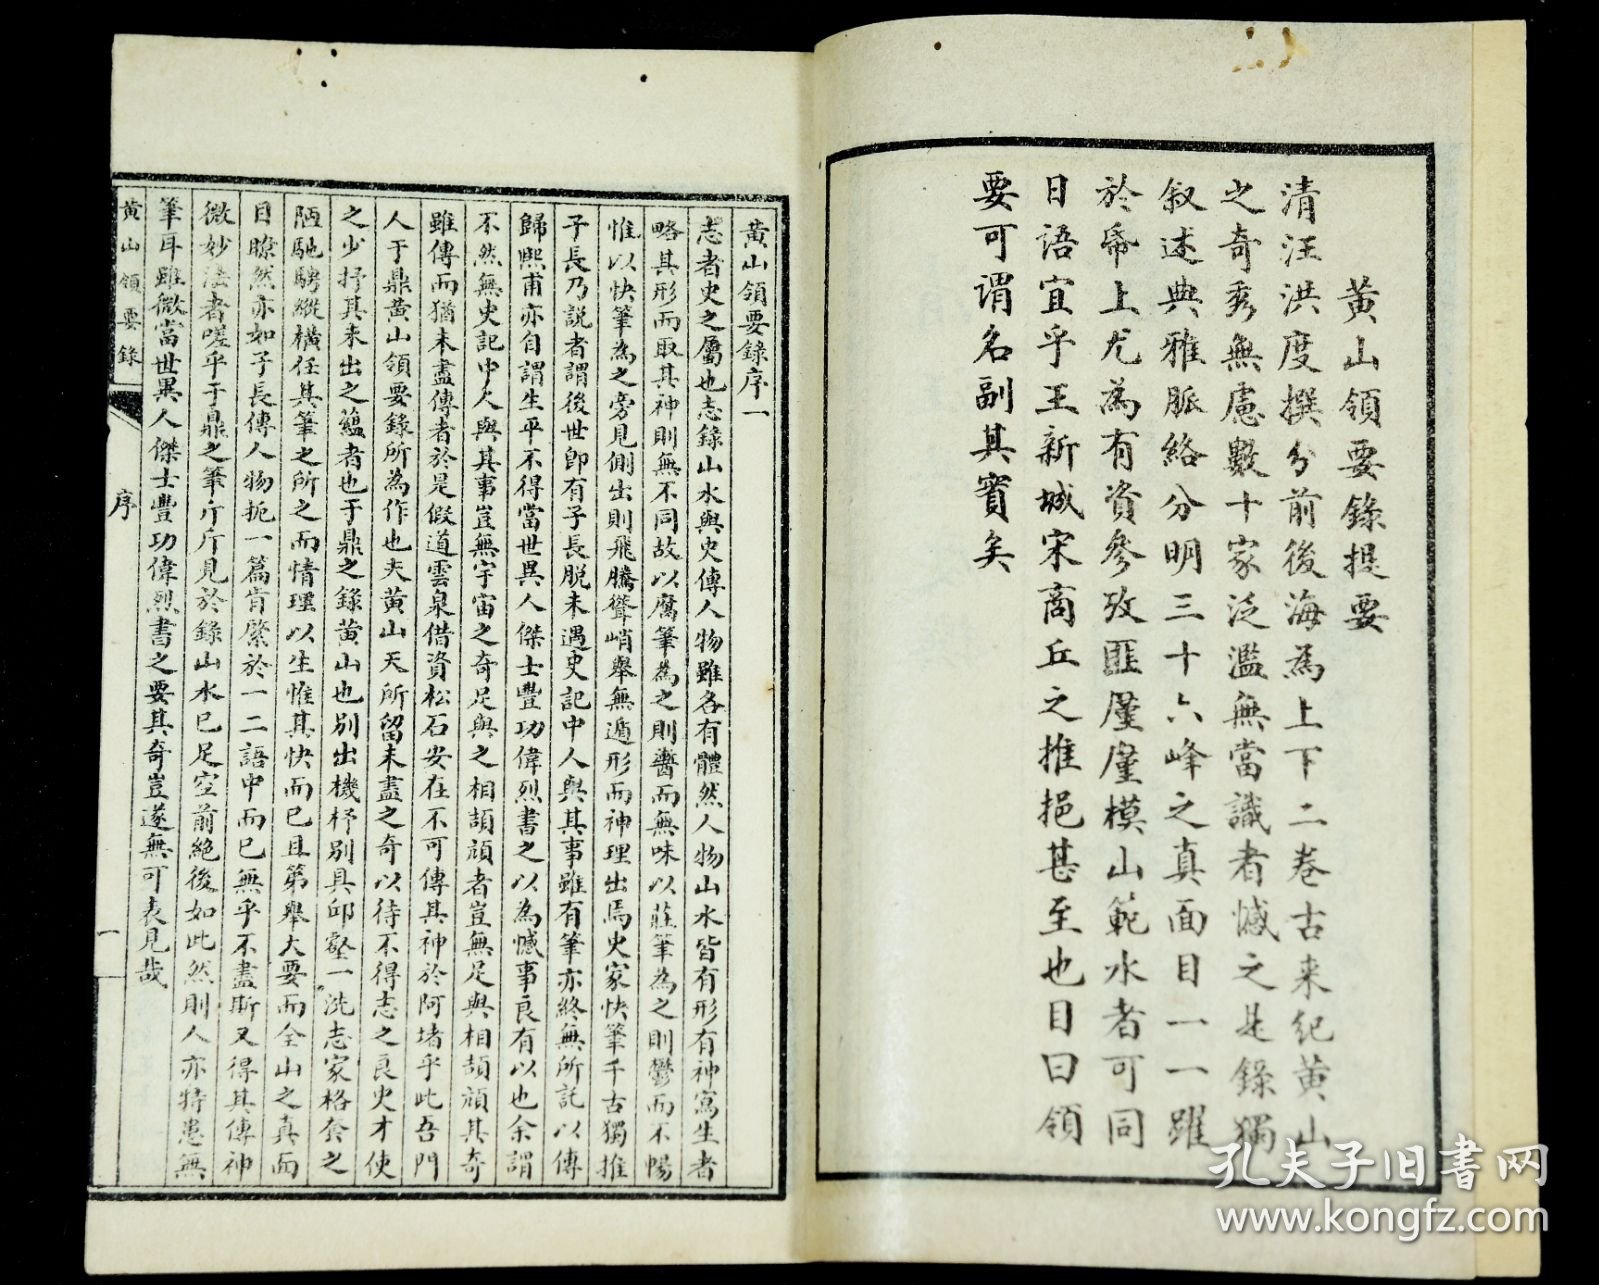 黄山領要錄提要
清汪洪度撰分前後海為上下二卷古来紀黄山
之奇秀無慮數十家泛濫無當識者憾之是錄獨
叙述典雅脈絡分明三十六峰之真面目一一躍
於帋上尤為有資參攷匪廑廑模山範水者可同
日語宜乎王新城宋商丘之推挹甚至也目曰領
要可謂名副其實矣
黃山領要錄序一
志者史之屬也志錄山水與史傳人物雖各有體然人物山水皆有形有神寫生者
略其形而取其神則無不同故以腐筆為之則嗇而無味以莊筆為之則鬱而不暢
惟以快筆為之旁見側出則飛騰聳峭舉無遁形而神理出焉史家快筆千古獨推
子長乃說者謂後世卽有子長脱未遇史記中人與其事雖有筆亦終無所託以傳
歸熙甫亦自謂生平不得當世異人傑士豐功偉烈書之以為憾事良有以也余謂
不然無史記中人與其事豈無宇宙之奇足與之相頡頏者豈無足與相頡頏其奇
雖傳而猶未盡傳者於是假道雲泉借資松石安在不可傳其神於阿堵乎此吾門
人于鼎黄山領要錄所為作也夫黄山天所留未盡之奇以待不得志之良史才使
之少抒其未出之蘊者也于鼎之錄黄山也別出機杼別具邱壑一洗志家格套之
陋馳騁縱橫任其筆之所之而情理以生惟其快而已且第舉大要而全山之真面
目瞭然亦如子長傳人物扼一篇肯綮於一二語中而已無乎不盡斯又得其傳神
微妙法者嗟乎于鼎之筆斤斤見於錄山水已足空前絶後如此然則人亦特患無
筆耳雖微當世異人傑士豐功偉烈書之要其奇豈遂無可表見哉
黄山領要錄
序
一
孔夫子旧書网
www.kongfz.com